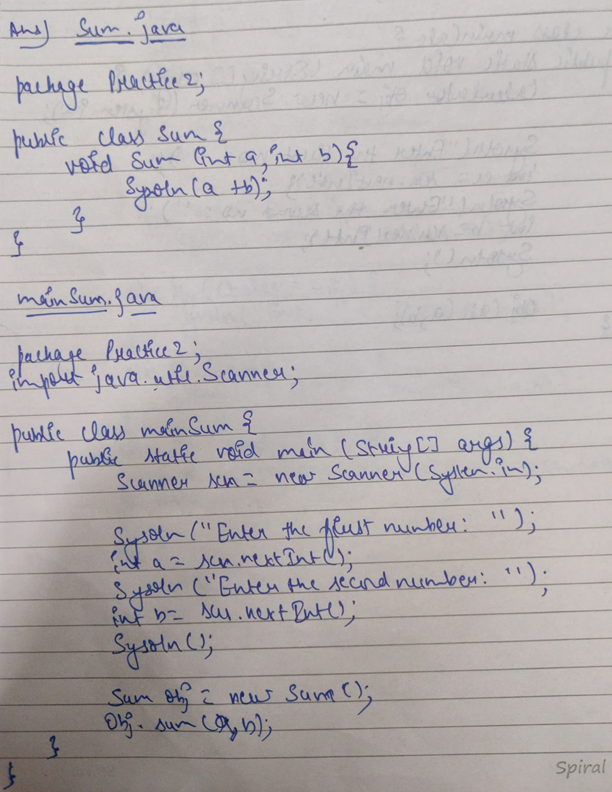 Ans) Sum.java
package Practice2;
public class Sum {
void Sum (int a, int b) {
Sysoln (a + b);
}
}
mainSum.java
package Practice2;
import java.util.Scanner;
public class mainSum {
public static void main (String[] args) {
Scanner scn = new Scanner (System.in);
Sysoln ("Enter the first number: ");
int a = scn.nextInt();
Sysoln ("Enter the second number: ");
int b = scn.nextInt();
Sysoln ();
Sum obj = new Sum ();
Obj. sum (a, b);
}
}
Spiral